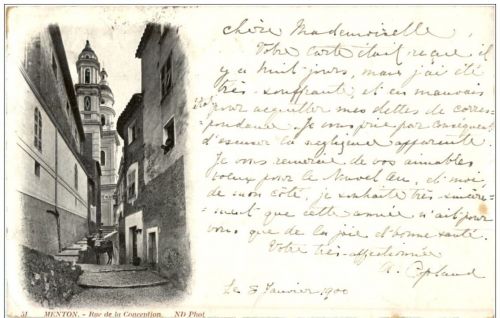 Chère Mademoiselle,
Votre carte était reçue il
y a huit jours, mais j'ai été
très souffrante, et en mauvais
pour acquitter mes dettes de corres-
pondance. Je vous prie par conséquent
d'excuser la negligence apparente.
Je vous remercie de vos aimables
voeux pour le Nouvel An, et moi,
de mon côté, je souhaite très sincère-
ment que cette année n'ait pour
vous, que de la joie et bonne santé.
Votre très-affectionnée
A. Copland
Le 8 Janvier, 1900
51 MENTON. - Rue de la Conception. ND Phot